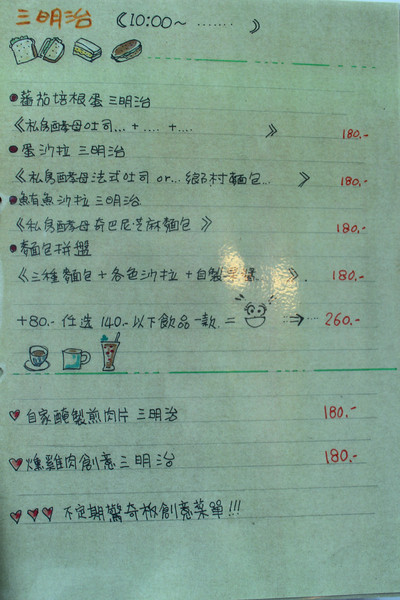 三明治 《10:00~ ....... 》
●蕃茄培根蛋 三明治
《私房酵母吐司... + .... + .... 》 180.-
●蛋沙拉 三明治
《私房酵母法式吐司 or... 鄉村麵包... 》 180.-
●鮪魚沙拉 三明治
《私房酵母奇巴尼芝麻麵包 》 180.-
●麵包拼盤
《三種麵包+各色沙拉+自製 》. 180.-
+80.- 任选 140.-以下飲品一款. = ⇒ ... 260.-
♥自家醃製煎肉片 三明治 180.-
♥燻雞肉創意三明治 180.-
♥♥♥ 不定期驚奇板創意菜單!!!